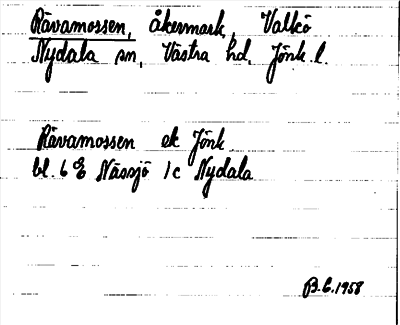 Rävamossen, åkermark, Valkö
Nydala sn, Västra hd, Jönk. l.
Rävamossen ek Jönk
bl. 6 E Nässjö 1c Nydala
B.E. 1958